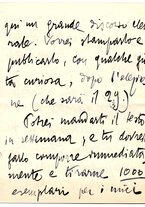 qui un grande discorso elet-
rale. Vorrei stamparlo e
pubblicarlo, con qualche giun-
ta curiosa, dopo l'elezio-
ne (che sarà il 29).
Potrei mandarti il testo
in settimana, e tu dovresti
farlo comporre immediata-
mente e tirarne 1000
esemplari per i miei